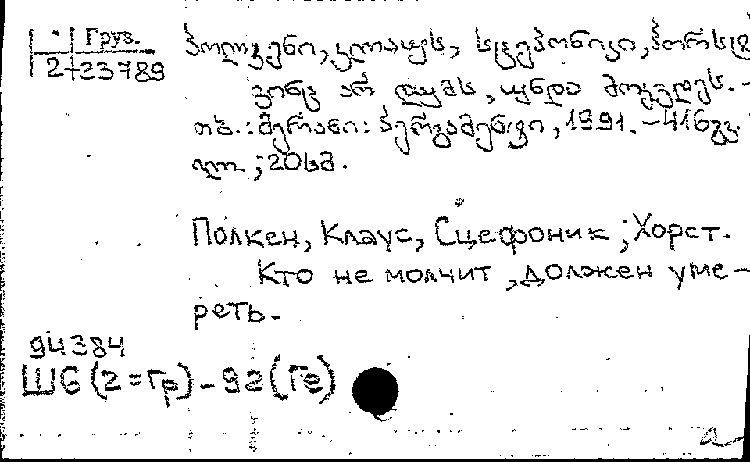 Груз.
2-23789
პოლკენი, კლაუს, სცეპონიკი, ჰორსტ
ვინც არ დუმს, უნდა მოკვდეს. -
თბ. : მერანი : პერგამენტი, 1991. - 416გვ.
ილ ; 20სმ.
Полкен, Клаус, Сцефоник ; Хорст.
Кто не молчит, должен уме-
реть.
94384
Ш6(2=Гр)-9а(Ге)
а